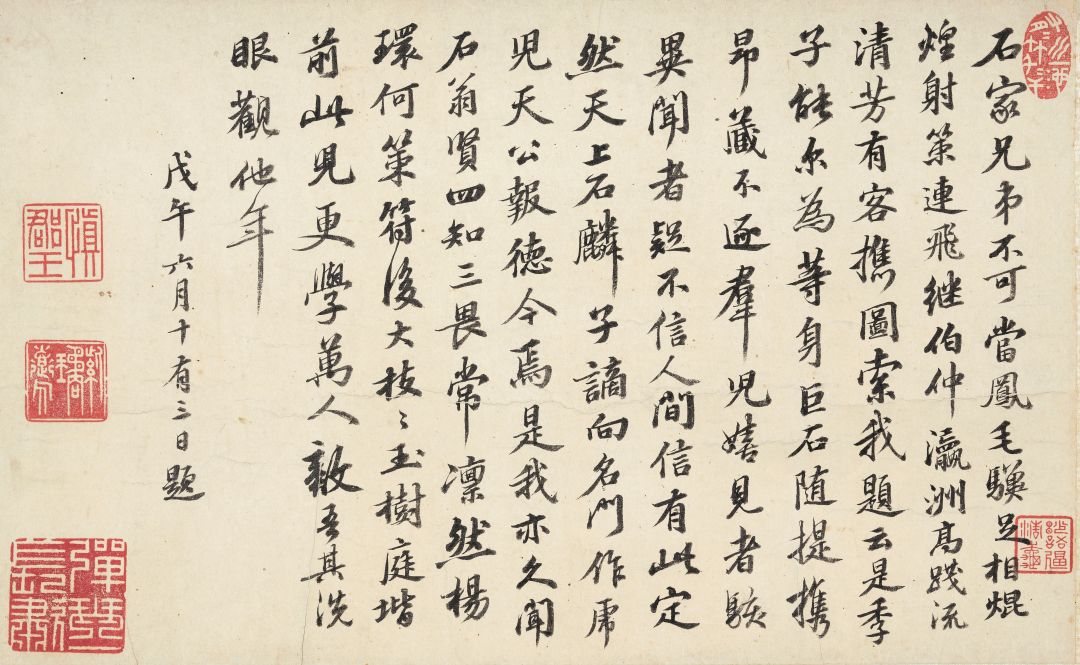 石家兄弟不可當鳳毛驥足相焜
煌射策連飛继伯仲瀛洲髙踐流
清芳有客攜圖索我題云是季
子能尔為等身巨石随提攜
昂藏不逐羣児嬉見者駭
異聞者疑不信人間信有此定
然天上石麟子謫向名門作虎
児天公報德今焉是我亦久聞
石翁賢四知三畏常凛然楊
環何策符後大枝〻玉樹庭堦
前此児更學萬人敵吾其洗
眼觀他年
戊午六月十有三日題
慎郡王